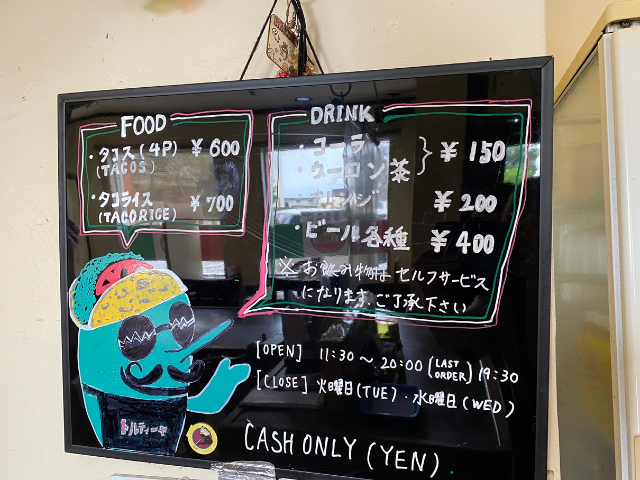 FOOD
・タコス(4P) ¥600
(TACOS)
・タコライス ¥700
(TACORICE)
DRINK
・コーラ
・ウーロン茶 } ¥150
¥200
・ビール各種 ¥400
※お飲み物はセルフサービス
になります。ご了承下さい
[OPEN] 11:30～20:00 (LAST ORDER) 19:30
[CLOSE] 火曜日(TUE)・水曜日(WED)
トルティーヤ
CASH ONLY (YEN)